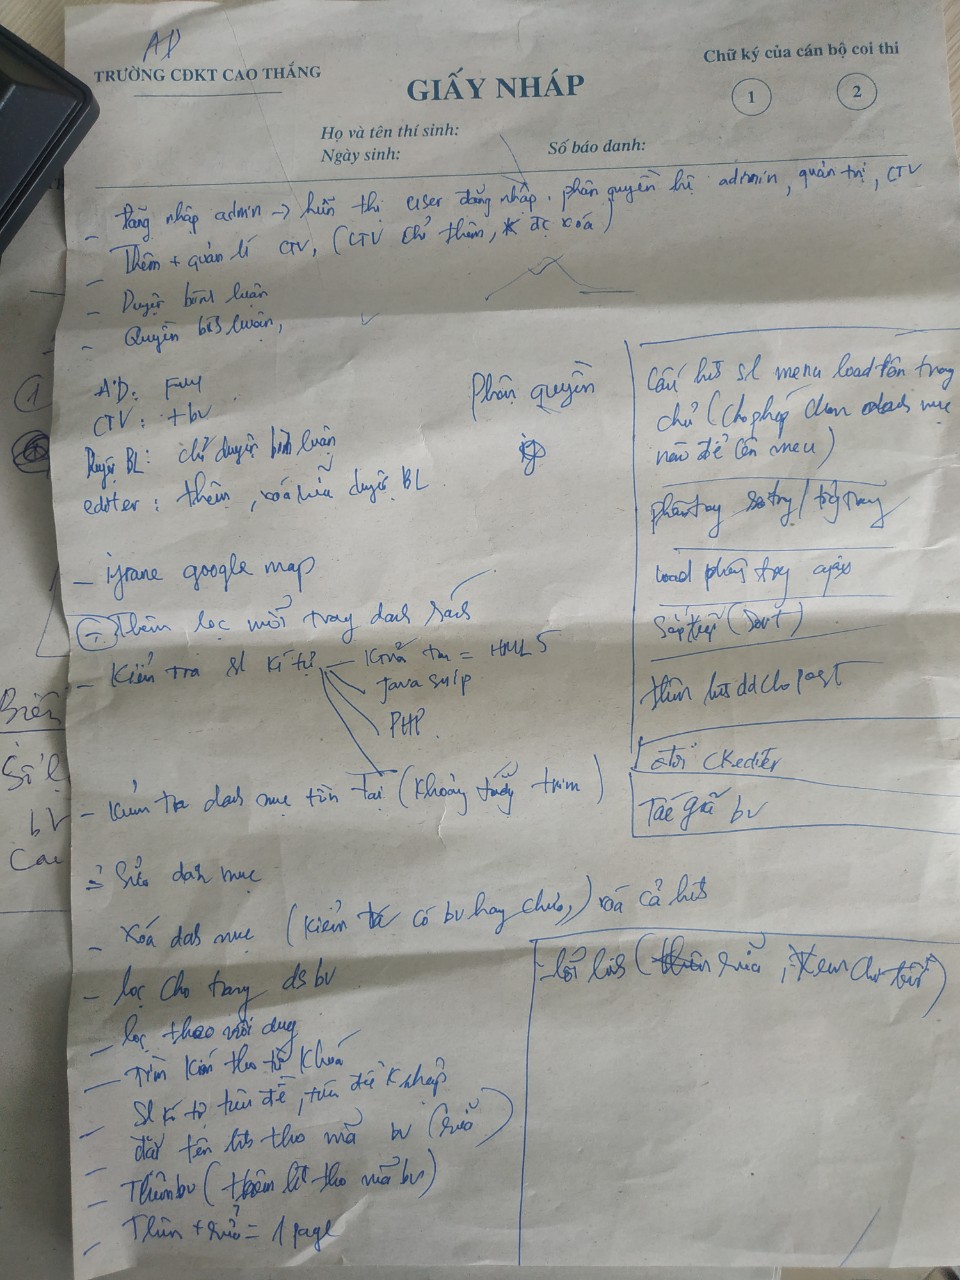 AD
TRƯỜNG CĐKT CAO THẮNG
GIẤY NHÁP
Chữ ký của cán bộ coi thi
1
2
Họ và tên thí sinh:
Số báo danh:
Ngày sinh:
- Đăng nhập admin -> hiển thị user đăng nhập. phân quyền admin, quản trị, CTV
- Thêm + quản lí CTV, (CTV chỉ thêm, k đc xoá)
- Duyệt bình luận
- Quyền bình luận,
AD: Full
CTV: + bv
Duyệt BL: chỉ duyệt bình luận
editer: thêm, xoá sửa duyệt BL
Phân quyền
- iframe google map
- Thêm lọc mới trong danh sách
- Kiểm tra sl kí tự - Kiểm tra = HTML 5
Java scrip
PHP
- Kiểm tra danh mục tồn tại (Khoảng trắng trim)
- Sửa danh mục
- Xóa danh mục (kiểm tra có bv hay chưa,) xóa cả hết
- lọc cho trang ds bv
- lọc theo nội dung
- Tìm kiếm theo từ khoá
- Sl kí tự tiêu đề, tiêu đề k nhập
- đặt tên theo mã bv (sửa)
- Thêm bv ( theo mã bv)
- Thêm + sửa = 1 page
hết sl menu load lên trang
chủ (cho phép chọn danh mục
nào để lên menu)
phân trang
load phân trang ajax
Sắp xếp (Sort)
cho post
CKediter
Tác giả bv
- lỗi (sửa, xem chi tiết)
①
Biến
bv